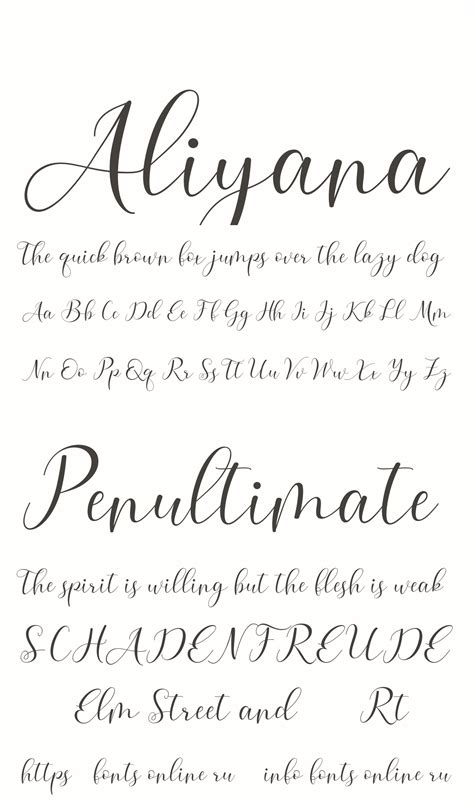 Aliyana
The quick brown fox jumps over the lazy dog
Aa Bb Cc Dd Ee Ff Gg Hh Ii Jj Kk Ll Mm
Nn Oo Pp Qq Rr Ss Tt Uu Vv Ww Xx Yy Zz
Penultimate
The spirit is willing but the flesh is weak
SCHADENFREUDE
Elm Street and Rt
https fonts online ru info fonts online ru